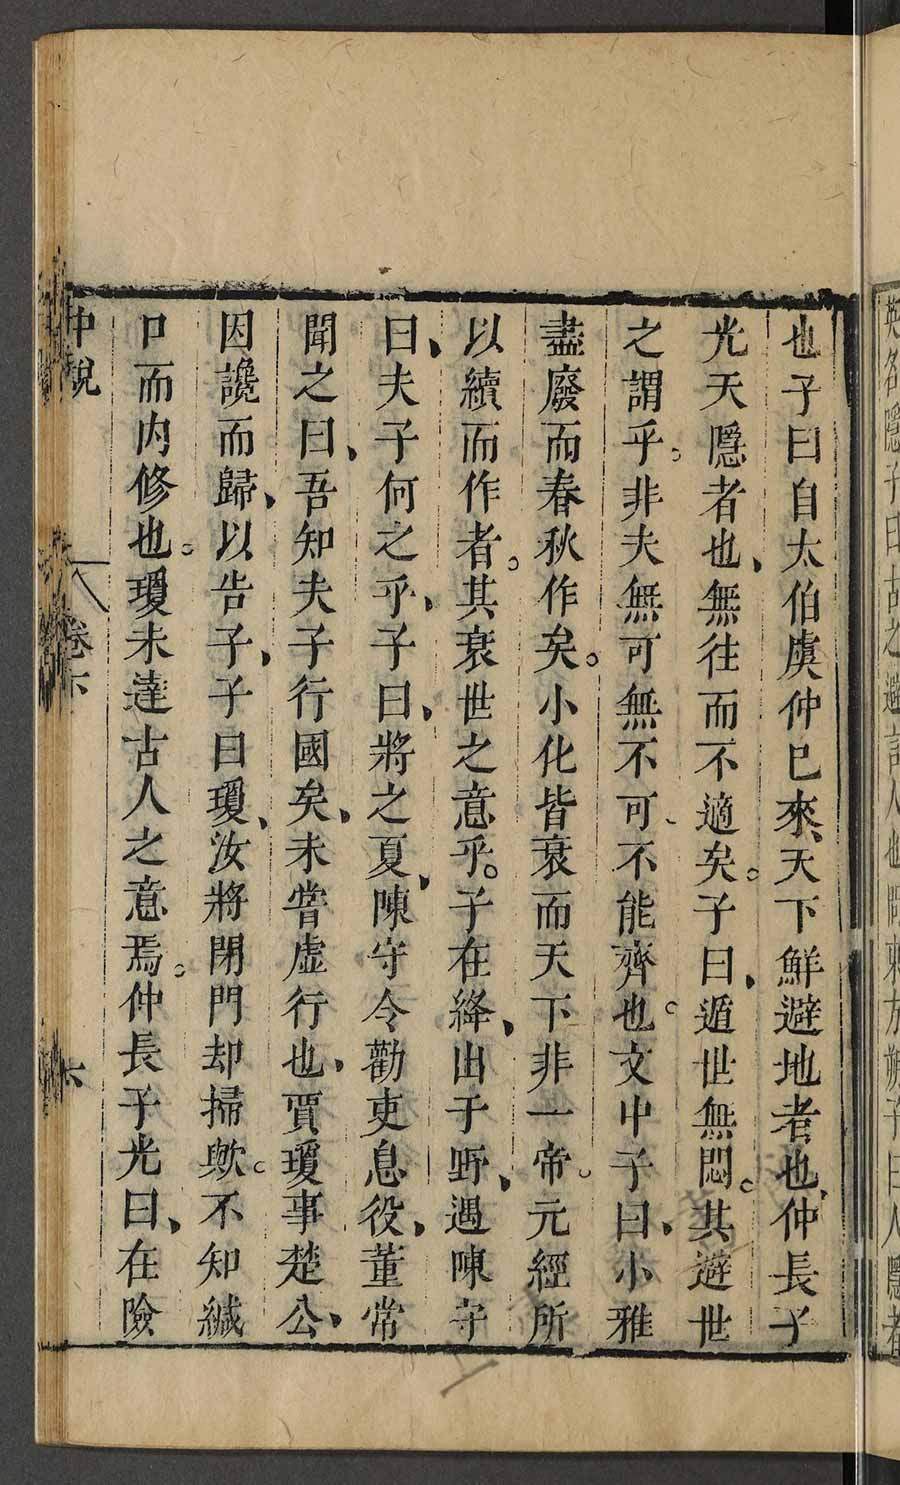 也子曰自太伯虞仲已來、天下鮮避地者也、仲長子
光天隱者也、無往而不適矣。子曰、遁世無悶。其避世
之謂乎。非夫無可無不可、不能齊也。文中子曰、小雅
盡廢而春秋作矣。小化皆衰而天下非一帝。元經所
以續而作者。其衰世之意乎。子在絳、出于野、遇陳守
曰、夫子何之乎、子曰、將之夏、陳守令勸吏息役、董常
聞之曰、吾知夫子行國矣、未嘗虛行也、賈瓊事楚公、
因讒而歸、以告子、子曰瓊、汝將閉門却掃歟。不知緘
口而內修也。瓊未達古人之意焉。仲長子光曰、在險
中說
卷下
六